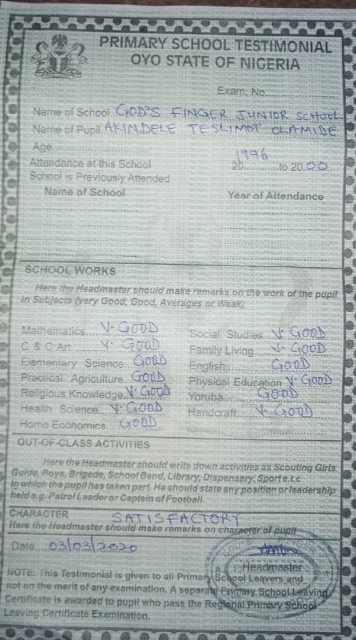 PRIMARY SCHOOL TESTIMONIAL
OYO STATE OF NIGERIA
Exam, No.
Name of School GOD'S FINGER JUNIOR SCHOOL
Name of Pupil AKINDELE TESLIMOT OLAMIDE
Age
Attendance at this School 1996 20..........to 2000
School is Previously Attended
Name of School Year of Attendance
SCHOOL WORKS
Here the Headmaster should make remarks on the work of the pupil
in Subjects (very Good, Good, Averages or Weak)
Mathematics V. GOOD Social Studies V. GOOD
C & C Art V. GOOD Family Living V. GOOD
Elementary Science GOOD English GOOD
Practical Agriculture GOOD Physical Education V. GOOD
Religious Knowledge V. GOOD Yoruba GOOD
Health Science V. GOOD Handcraft V. GOOD
Home Economics GOOD
OUT-OF-CLASS ACTIVITIES
Here the Headmaster should write down activities as Scouting Girls
Guide, Boys, Brigade, School Band, Library, Dispensary, Sport e.t.c
in which the pupil has taken part. He should state any position or leadership
held e.g. Patrol Leader or Captain of Football.
CHARACTER SATISFACTORY
Here the Headmaster should make remarks on character of pupil
Date 03/03/2020
Headmaster
NOTE: This Testimonial is given to all Primary School Leavers and
not on the merit of any examination. A separate Primary School Leaving
Certificate is awarded to pupil who pass the Regional Primary School
Leaving Certificate Examination.